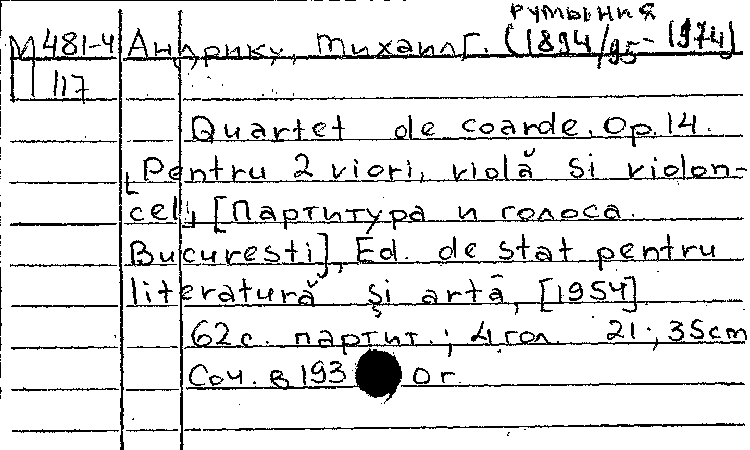 РУМЫНИЯ
М 481-4 Андрику, Михаил Г. (1894/95-1974)
117
Quartet de coarde. Op. 14.
Pentru 2 viori, violă si violon-
cel, [Партитура и голоса.
Bucuresti], Ed. de stat pentru
literatură şi artă, [1954]
62 с. партит.; 4 гол. 21; 35 cm
Соч. в 193 0 г.